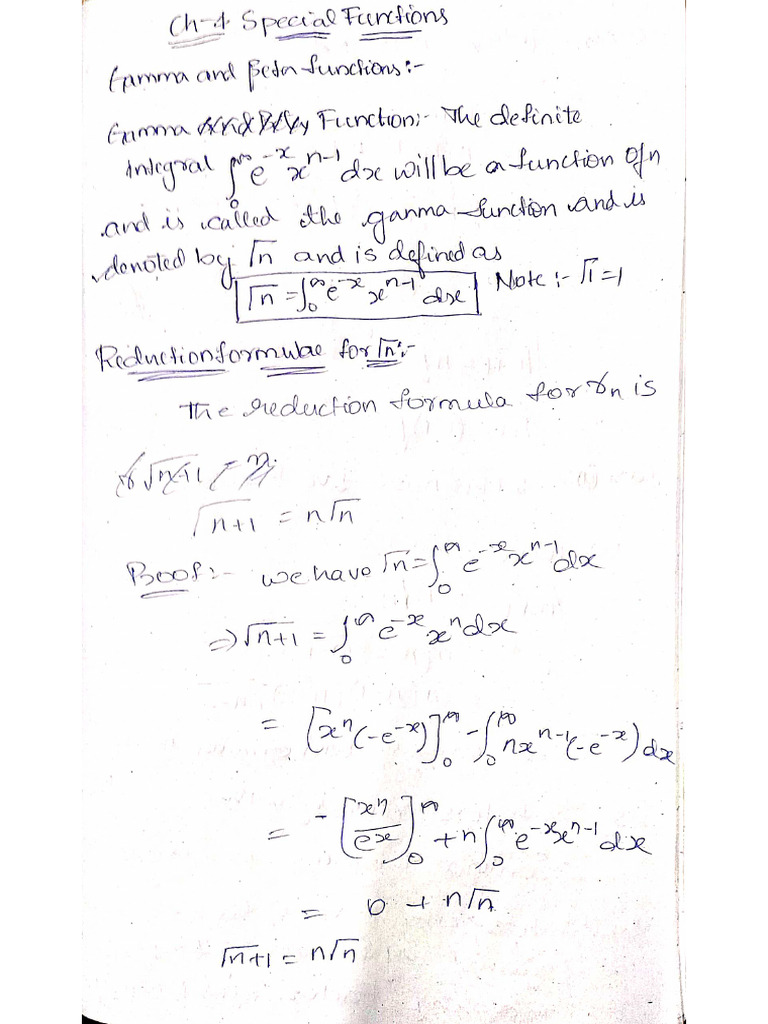 Ch-4. Special Functions
Gamma and Beta functions:-
Gamma Function:- The definite
integral ∫₀^∞ e^{-x} x^{n-1} dx will be a function of n
and is called the gamma function and is
denoted by Γn and is defined as
Γn = ∫₀^∞ e^{-x} x^{n-1} dx Note:- Γ1 = 1
Reduction formulae for Γn:-
The reduction formula for γn is
Γn+1 = nΓn
Proof:- we have Γn = ∫₀^∞ e^{-x} x^{n-1} dx
⇒ Γn+1 = ∫₀^∞ e^{-x} x^n dx
= [x^n (-e^{-x})]₀^∞ - ∫₀^∞ n x^{n-1} (-e^{-x}) dx
= -[x^n / e^x]₀^∞ + n ∫₀^∞ e^{-x} x^{n-1} dx
= 0 + nΓn
Γn+1 = nΓn